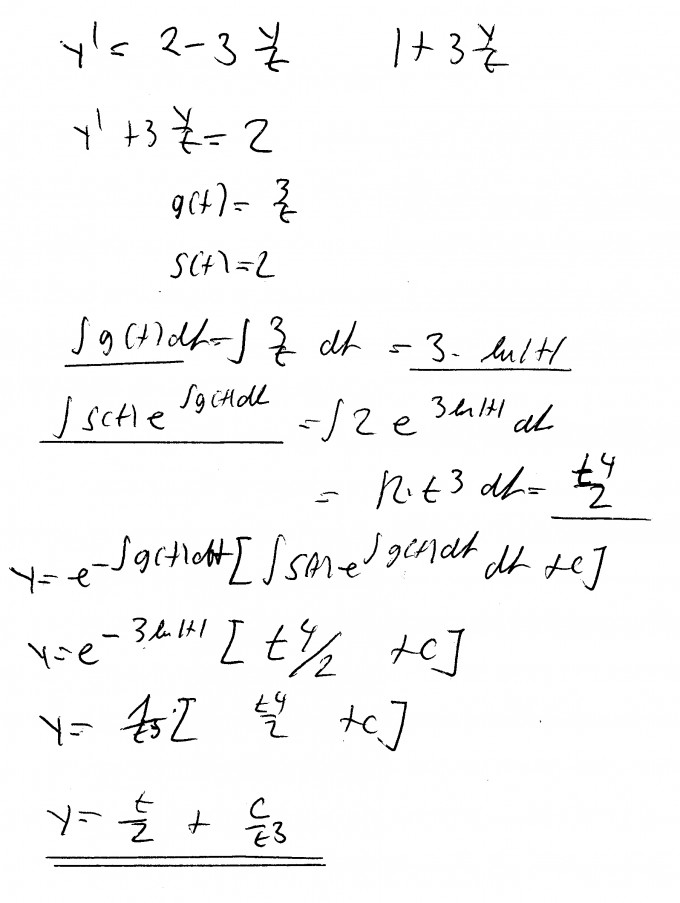 y' = 2 - 3 y/t    | + 3 y/t
y' + 3 y/t = 2
g(t) = 3/t
s(t) = 2
∫g(t)dt = ∫ 3/t dt = 3 · ln|t|
∫s(t) e^∫g(t)dt = ∫ 2 e^3ln|t| dt
= ∫2·t^3 dt = t^4/2
y = e^-∫g(t)dt [ ∫s(t) e^∫g(t)dt dt + c ]
y = e^-3ln|t| [ t^4/2 + c ]
y = 1/t^3 [ t^4/2 + c ]
y = t/2 + c/t^3